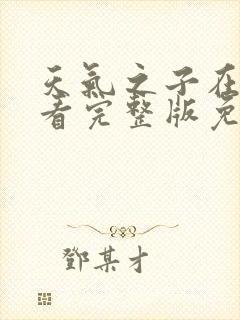 天氣之子在
看完整版免
鄧某才